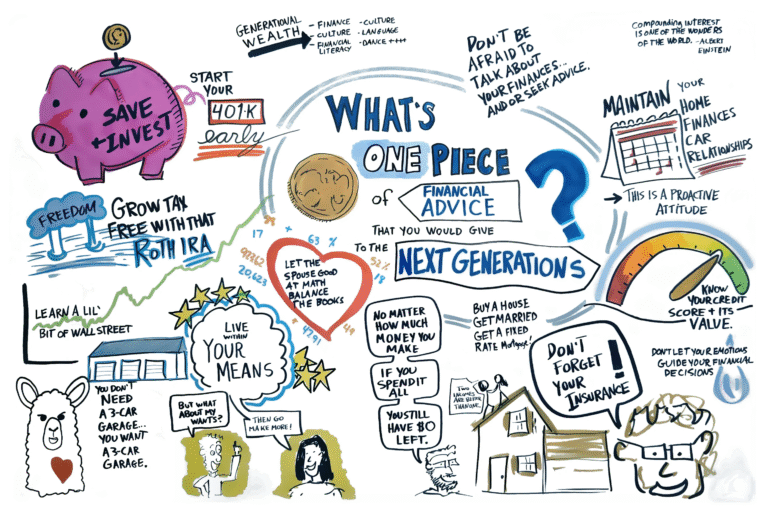 GENERATIONAL
WEALTH
- FINANCE
- CULTURE
- FINANCIAL
LITERACY
- CULTURE
- LANGUAGE
- DANCE ++++
DON'T BE
AFRAID TO
TALK ABOUT
YOUR FINANCES...
AND/OR SEEK ADVICE.
COMPOUNDING INTEREST
IS ONE OF THE WONDERS
OF THE WORLD. -ALBERT
EINSTEIN
SAVE
+ INVEST
START
YOUR
401-K
early
WHAT'S
ONE PIECE
of FINANCIAL
ADVICE
THAT YOU WOULD GIVE
TO THE
NEXT GENERATIONS
?
MAINTAIN
YOUR
HOME
FINANCES
CAR
RELATIONSHIPS
→ THIS IS A PROACTIVE
ATTITUDE
FREEDOM
GROW TAX
FREE WITH THAT
ROTH IRA
17
+
63 %
52%
18
20,623
49
4791
LET THE
SPOUSE GOOD
AT MATH
BALANCE
THE BOOKS
LEARN A LIL'
BIT OF WALL STREET
LIVE
WITHIN
YOUR
MEANS
NO MATTER
HOW MUCH
MONEY YOU
MAKE
IF YOU
SPEND IT
ALL
YOU STILL
HAVE $0
LEFT.
BUY A HOUSE
GET MARRIED
GET A FIXED
RATE MORTGAGE!
KNOW
YOUR CREDIT
SCORE + ITS
VALUE.
DON'T
FORGET
YOUR
INSURANCE
!
DON'T LET YOUR EMOTIONS
GUIDE YOUR FINANCIAL
DECISIONS
YOU DON'T
NEED
A 3-CAR
GARAGE...
YOU WANT
A 3-CAR
GARAGE.
BUT WHAT
ABOUT MY
WANTS?
THEN GO
MAKE MORE!
TWO
INCOMES
ARE BETTER
THAN ONE.